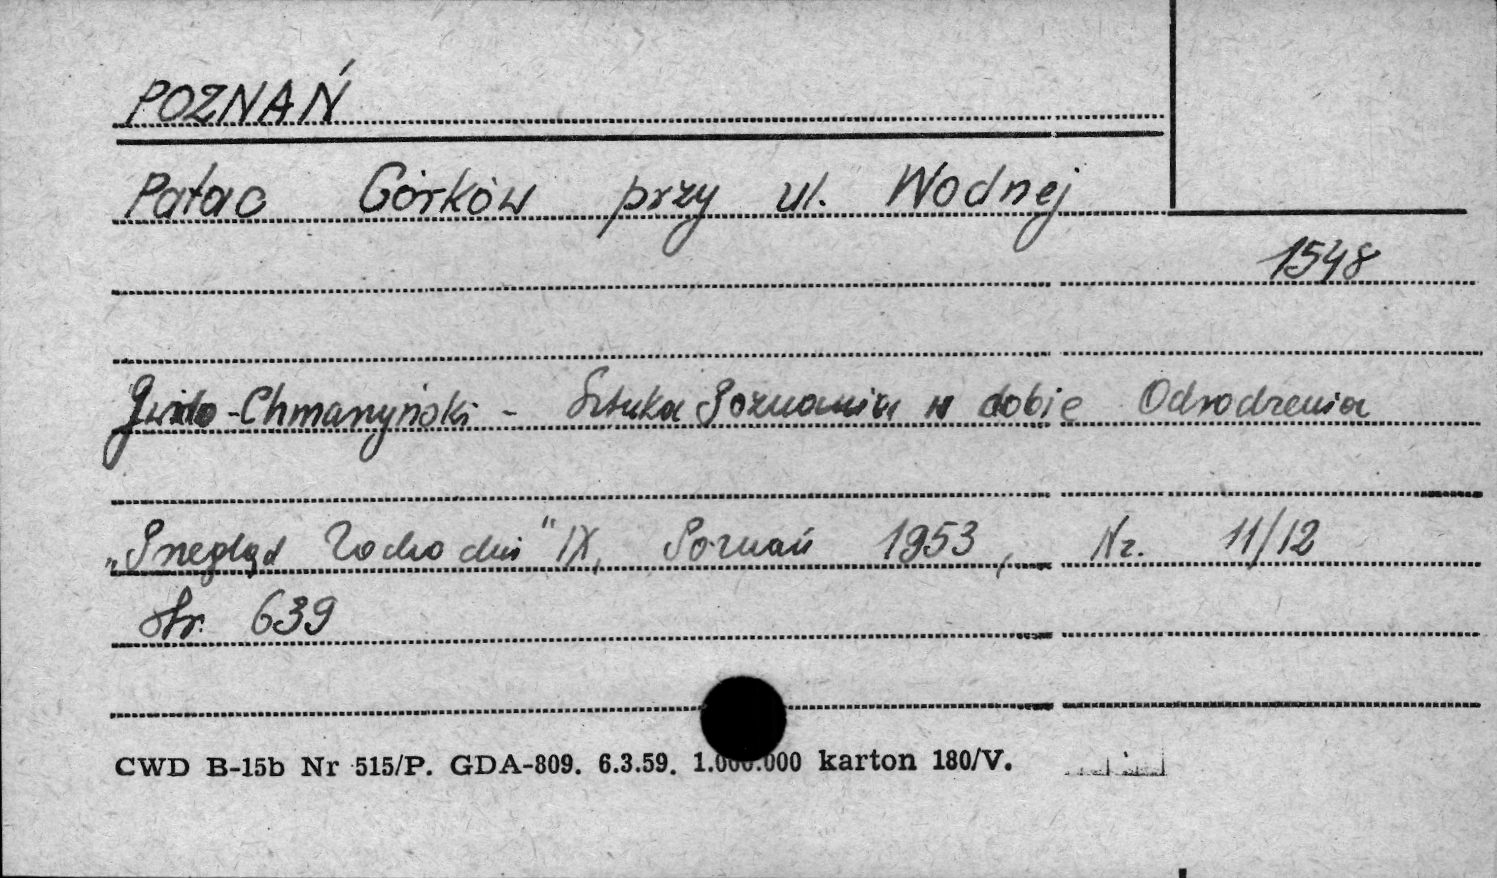 POZNAŃ
Pałac Górków przy ul. Wodnej
1548
Guido-Chmarzyński - Sztuka Poznania w dobie Odrodzenia
„Przegląd Zachodni" IX, Poznań 1953, Nr. 11/12
str. 639
CWD B-15b Nr 515/P. GDA-809. 6.3.59. 1.000.000 karton 180/V.